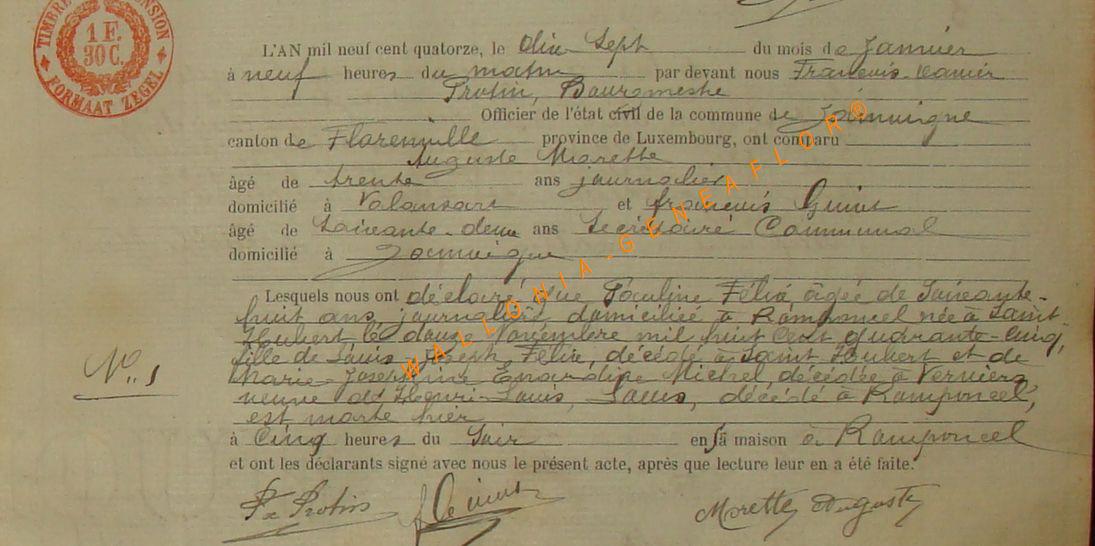 TIMBRE DIMENSION
1 F.
30 C.
FORMAAT ZEGEL
L'AN mil neuf cent quatorze, le dix Sept du mois de Janvier
à neuf heures du matin par devant nous François-Xavier
Protin, Bourgmestre
Officier de l'état civil de la commune de Jamoigne
canton de Florenville province de Luxembourg, ont comparu
Auguste Morette
âgé de trente ans journalier
domicilié à Valansart et François
âgé de Soixante-deux ans Secrétaire Communal
domicilié à Jamoigne
Lesquels nous ont déclaré que Pauline Félix, âgée de Soixante-
huit ans, journalière domiciliée à Romponcel née à Saint
Hubert le douze Novembre mil huit cent quarante-cinq,
fille de Louis Joseph Félix, décédé à Saint Hubert et de
Marie-Joséphine Michel décédée à Verviers
veuve de Henri-Louis, Louis, décédé à Romponcel,
est morte hier
N° 5
à Cinq heures du Soir en sa maison à Romponcel
et ont les déclarants signé avec nous le présent acte, après que lecture leur en a été faite.
Fx Protin
Morette Auguste
WALLONIA-GENEAFLOR®